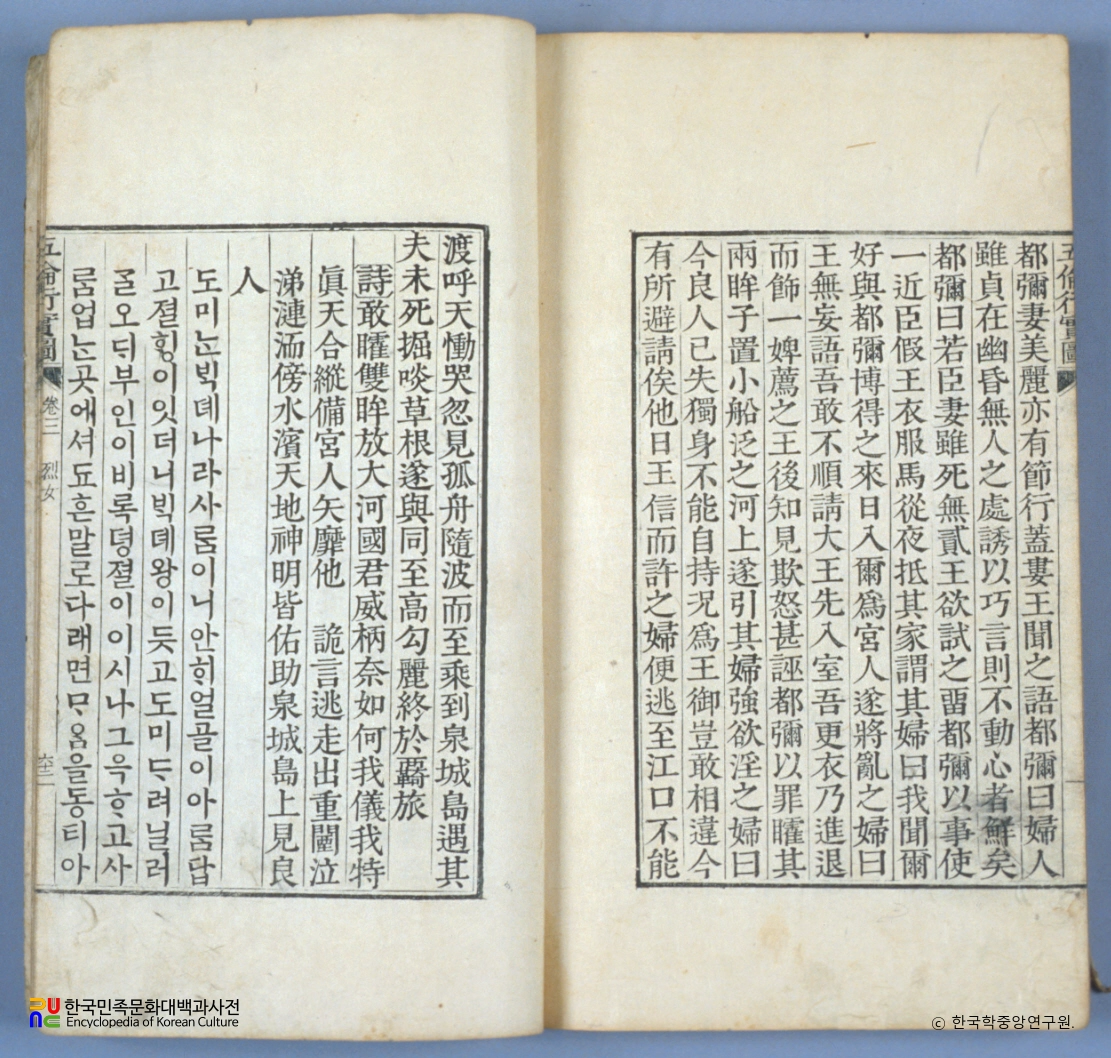 五倫行實圖
都彌妻美麗亦有節行蓋婁王聞之語都彌曰婦人
雖貞在幽昏無人之處誘以巧言則不動心者鮮矣
都彌曰若臣妻雖死無貳王欲試之畱都彌以事使
一近臣假王衣服馬從夜抵其家謂其婦曰我聞爾
好與都彌博得之來日入爾爲宮人遂將亂之婦曰
王無妄語吾敢不順請大王先入室吾更衣乃進退
而飾一婢薦之王後知見欺怒甚誣都彌以罪矐其
兩眸子置小船泛之河上遂引其婦強欲淫之婦曰
今良人已失獨身不能自持况爲王御豈敢相違今
有所避請俟他日王信而許之婦便逃至江口不能
渡呼天慟哭忽見孤舟隨波而至乘到泉城島遇其
夫未死掘啖草根遂與同至高勾麗終於覊旅
詩敢矐雙眸放大河國君威柄奈如何我儀我特
眞天合縱備宮人矢靡他 詭言逃走出重闉泣
涕漣洏傍水濱天地神明皆佑助泉城島上見良
人
도미ᄂᆞᆫᄇᆡᆨ뎨나라사ᄅᆞᆷ이니안ᄒᆡ얼골이아ᄅᆞᆷ답
고졀ᄒᆡᆼ이잇더니ᄇᆡᆨ뎨왕이듯고도미ᄃᆞ려닐러
ᄀᆞᆯ오ᄃᆡ부인이비록뎡졀이이시나그윽ᄒᆞ고사
ᄅᆞᆷ업ᄂᆞᆫ곳에셔됴흔말로다래면ᄆᆞᄋᆞᆷ을동티아
五倫行實圖 卷三 烈女 六二
한국민족문화대백과사전
Encyclopedia of Korean Culture
ⓒ 한국학중앙연구원.